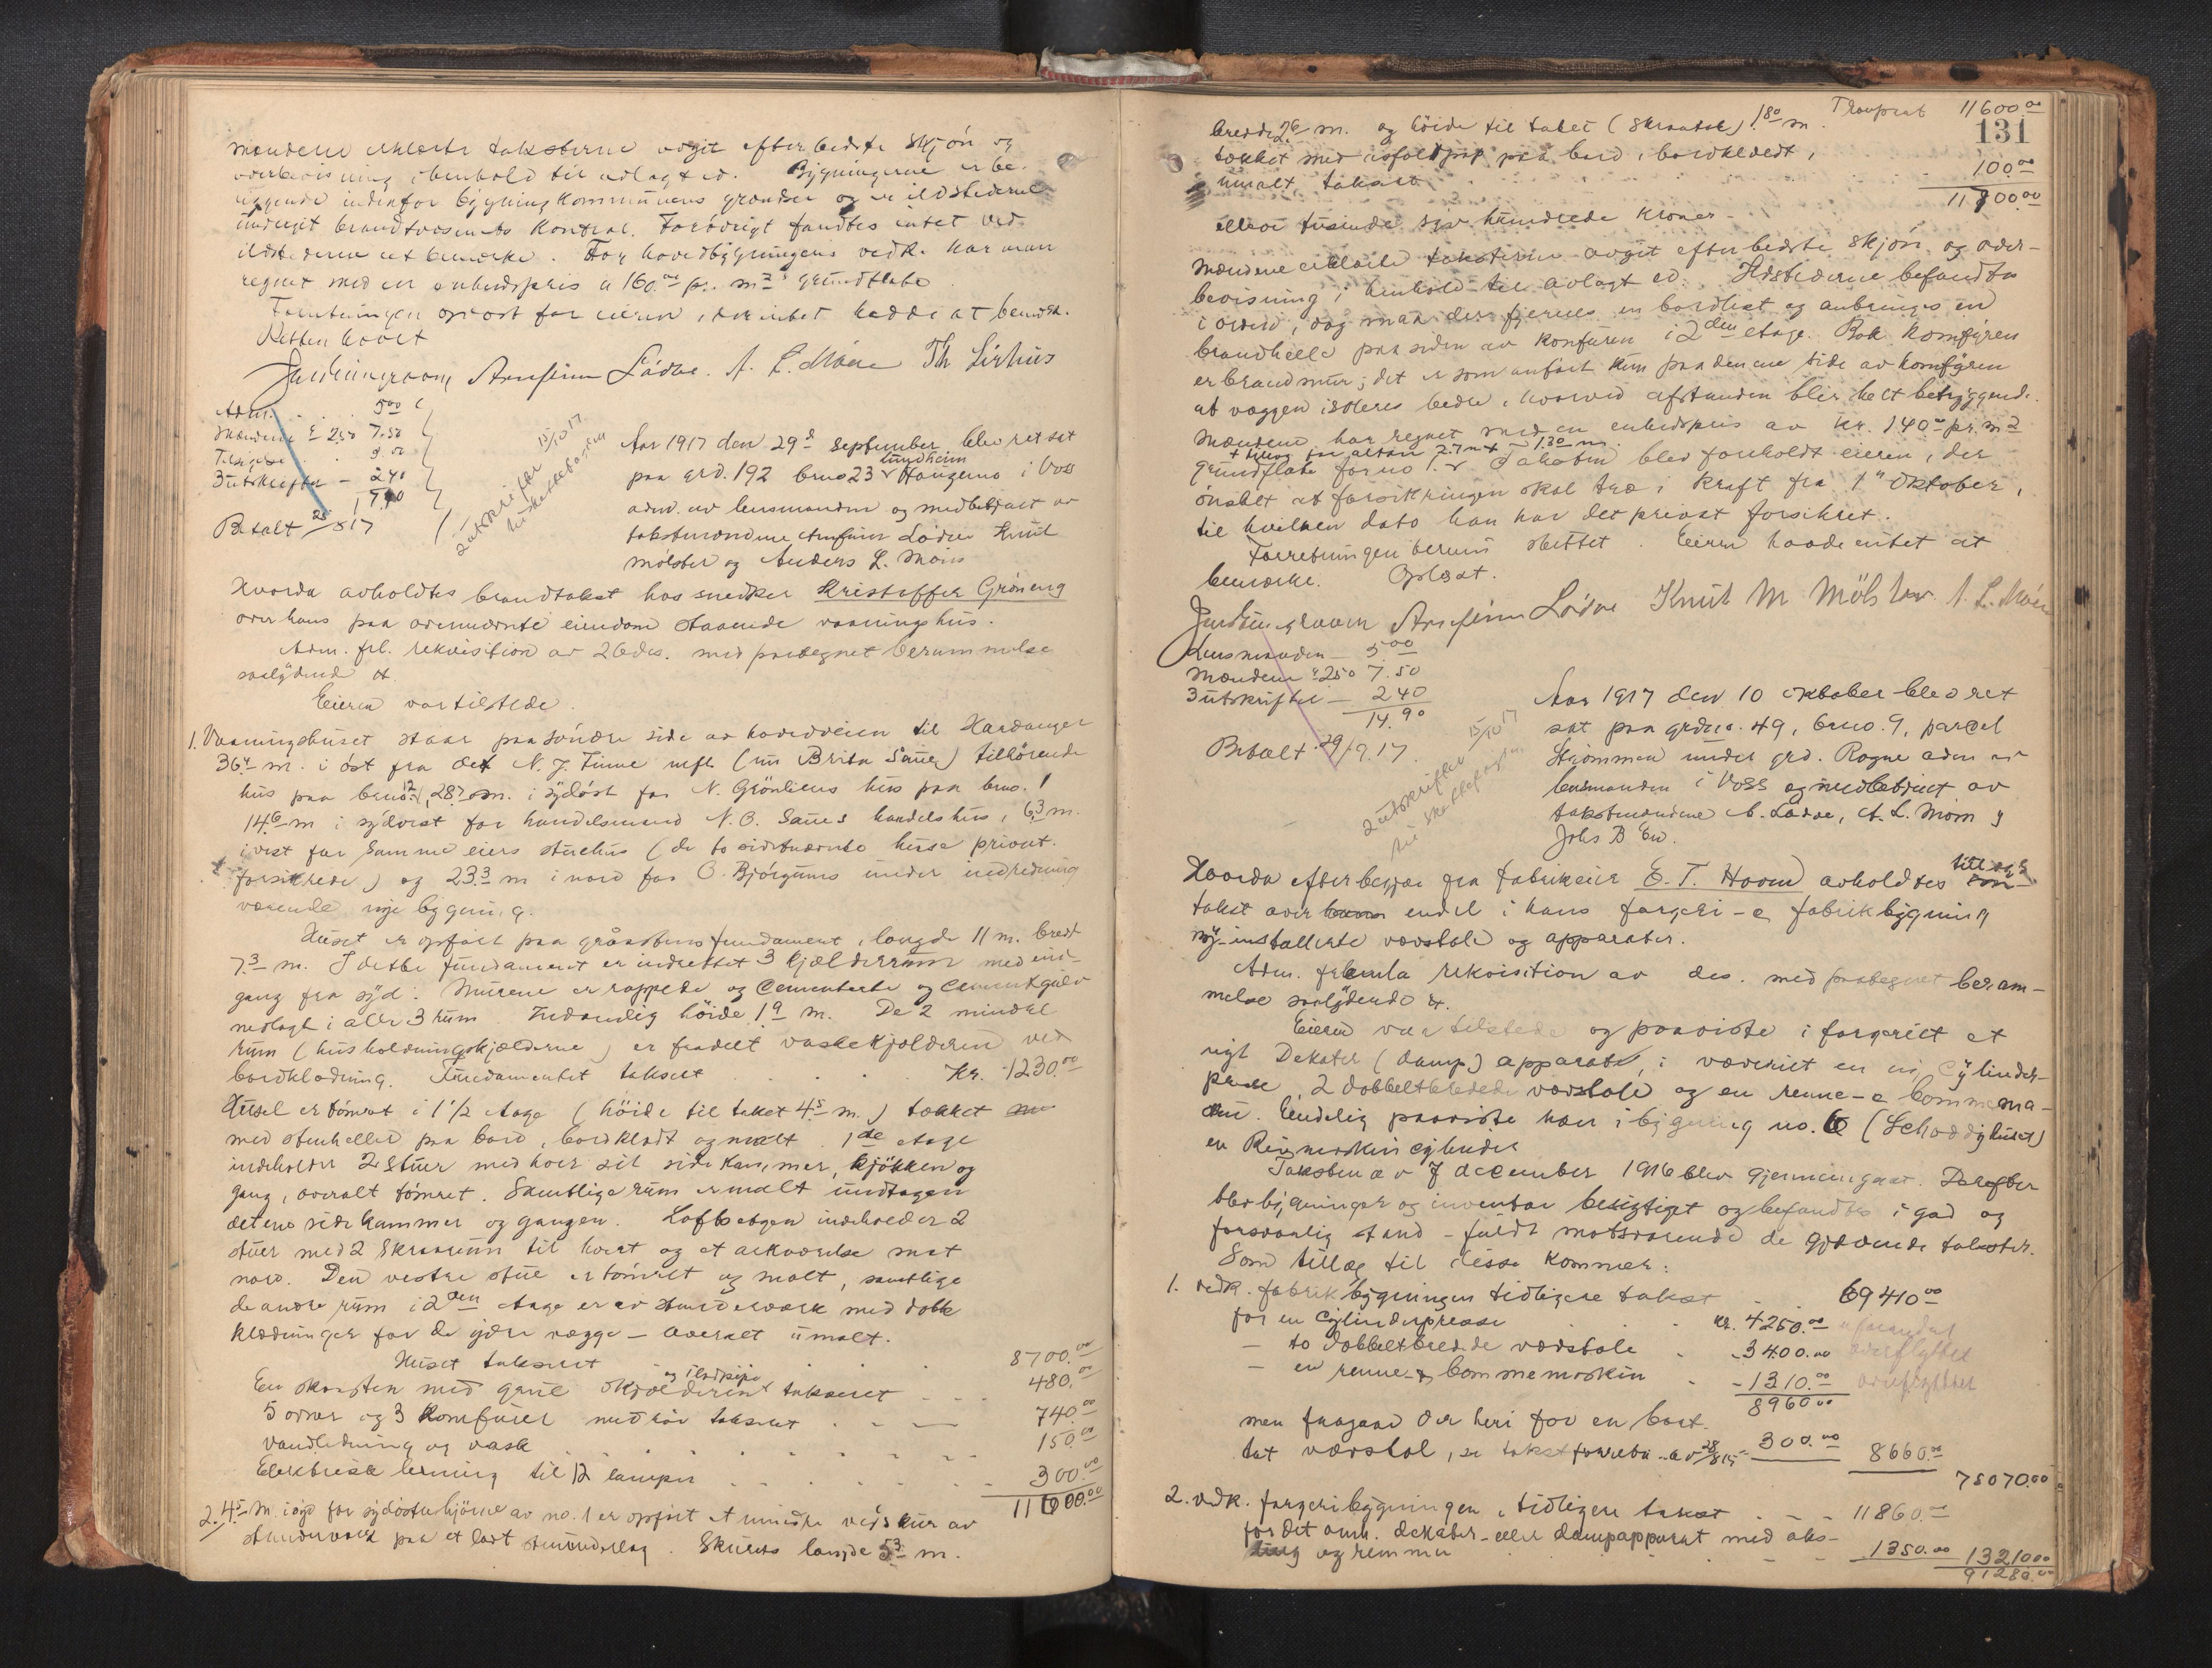 mændene erklærte taksterne avgit efter bedste skjøn og
overbevisning i henhold til avlagt ed. Bygningerne er be-
liggende indenfor bygningskommunens grændser og er ildstederne
undergit brandvæsenets kontrol. Forøvrigt fandtes intet ved
ildstederne at bemerke. For hovedbygningens vedk. har man
regnet med en enhedspris a 160.00 pr. m2 grundflate.
Forretningen oplæst for eieren, der intet hadde at bemerke.
Retten hævet
Arnfinn Lødve. A. L. Møen Th. Lirhus
Adm. . . . 5.00
Mændene à 2.50 7.50
3 utskrifter — 2.40
Betalt
2 utskrifter 15/10 17
Aar 1917 den 29de september blev ret sat
paa grd. 192 brno 23 Lundheim Haugemo i Voss
adm. av lensmanden og medbetjent av
takstmændene Arnfinn Lødve Knut
Mølster og Anders L. Møen
Hvorda avholdtes brandtakst hos snedker Kristoffer Grøneng
over hans paa ovennævnte eiendom staaende vaaningshus.
Adm. frl. rekvisition av 26 ds. med paategnet berammelse
saalydende
Eieren var tilstede.
1. Vaaningshuset staar paa søndre side av hovedveien til Hardanger
36.4 m. i øst fra det N. J. Finne mfl. (nu Brita Saue) tilhørende
hus paa brno. 12, 28.7 m. i sydøst for N. Grønliens hus paa brno. 1
14.6 m i sydvest for handelsmand N. O. Saues handelshus, 6.3 m.
i vest for samme eiers stuehus (de to sidstnævnte huse privat
forsikrede) og 23.3 m i nord for O. Bjørgums under indredning
værende nye bygning.
Huset er opført paa gråstens fundament, længde 11 m. bredde
7.3 m. I dette fundament er indrettet 3 kjælderrum med ind-
gang fra syd. Murene er rappede og cementerte og cementgulv
nedlagt i alle 3 rum. Indvendig høide 1.9 m. De 2 mindre
rum (husholdningskjælderne) er fradelt vaskekjælderen ved
bordklædning. Fundamentet takseret . . . Kr. 1230.00
Huset er tømret i 1 1/2 etage (høide til taket 4.5 m.) tækket
med stenheller paa bord, bordklædt og malt. 1ste etage
indeholder 2 stuer med hver sit sidekammer, kjøkken og
gang, overalt tømret. Samtlige rum er malt undtagen
det ene sidekammer og gangen. Loftsetagen indeholder 2
stuer med 2 skraarum til hver og et arkværelse mot
nord. Den vestre stue er tømret og malt, samtlige
de andre rum i 2den etage er av stenderverk med dobb.
klædninger for de ydre vægge — overalt umalt.
Huset takseret . . . 8700.00
En skorsten med grue i kjælderen og ildpipe takseret . . 480.00
5 ovner og 3 komfurer med rør takseret . . . 740.00
Vandledning og vask . . . 150.00
Elektrisk ledning til 12 lamper . . . 300.00
11600.00
2. 4.5 m. i syd for sydøstre hjørne av no. 1 er opført et mindre vedskur av
stenderverk paa et lavt stenunderlag. Skurets længde 5.3 m.
131
Transport 11600.00
bredde 2.6 m. og høide til taket (skraatak) 1.80 m.
tækket med asfaltpap paa bord, bordklædt,
umalt, takseret . . . 100.00
11700.00
elleve tusinde syv hundrede kroner
Mændene erklærte taksterne avgit efter bedste skjøn og over-
bevisning i henhold til avlagt ed. Ildstederne befandtes
i orden, dog maa der fjernes en bordlist og anbringes en
brandhelle paa siden av komfuren i 2den etage. Bak komfyren
er brandmur; det er som anført kun paa den ene side av komfyren
at væggen isoleres bedre, hvorved afstanden blir helt betryggende.
Mændene har regnet med en enhedspris av kr. 140.- pr. m2
+ tillæg for altan 2.7 m x 1.30 m.
grundflate for no 1. Taksten blev foreholdt eieren, der
ønsket at forsikringen skal træ i kraft fra 1ste oktober,
til hvilken dato han har det privat forsikret.
Forretningen herunder sluttet. Eieren hadde intet at
bemerke. Oplæst.
Arnfinn Lødve Knut M Mölster A. L. Møen
Lensmanden — 5.00
Mændene à 2.50 7.50
3 utskrifter — 2.40
14.90
Betalt 29/9 17.
2 utskrifter 15/10 17
Aar 1917 den 10 oktober blev ret
sat paa grdno. 49, brno. 9, parcel
Strømmen under grd. Rogne adm. av
lensmanden i Voss og medbetjent av
takstmændene A. Lødve, A. L. Møen og
Johs B. En.
Hvorda efter begjær fra fabrikeier E. T. Hovn avholdtes tillægs
takst over endel i hans farveri- & fabrikbygning
ny-installerte vævstole og apparater.
Adm. fremla rekvisition av ds. med paategnet beram-
melse saalydende
Eieren var tilstede og paaviste i farveriet et
nyt Dekater (damp) apparat, i væveriet en ny Cylinder-
presse, 2 dobbeltbredede vævstole og en renne- & bommema-
skin. Endelig paaviste han i bygning no. 6 (Schoddyhuset)
en Rivmaskin cylinder
Taksten av 7 december 1916 blev gjennemgaat. Derefter
blev bygninger og inventar besigtiget og befandtes i god og
forsvarlig stand — fuldt motsvarende de gjældende takster.
Som tillæg til disse kommer:
1. vedk. fabrikbygningen tidligere takst . . 69410.00
for en Cylinderpresse . . kr. 4250.00
— to dobbeltbredede vævstole . - 3400.00 overflyttet
— en renne- & bommemaskin . - 1310.00 overflyttet
8960.00
men fragaar der heri for en bort-
tat vævstol, se takstforretn. av 28/8 15 300.00 8660.00
78070.00
2. vedk. farveribygningen, tidligere takst . . . 11860.00
for det omh. dekater- eller dampapparat med aks-
ling og remmer . . . 1350.00 13210.00
91280.00